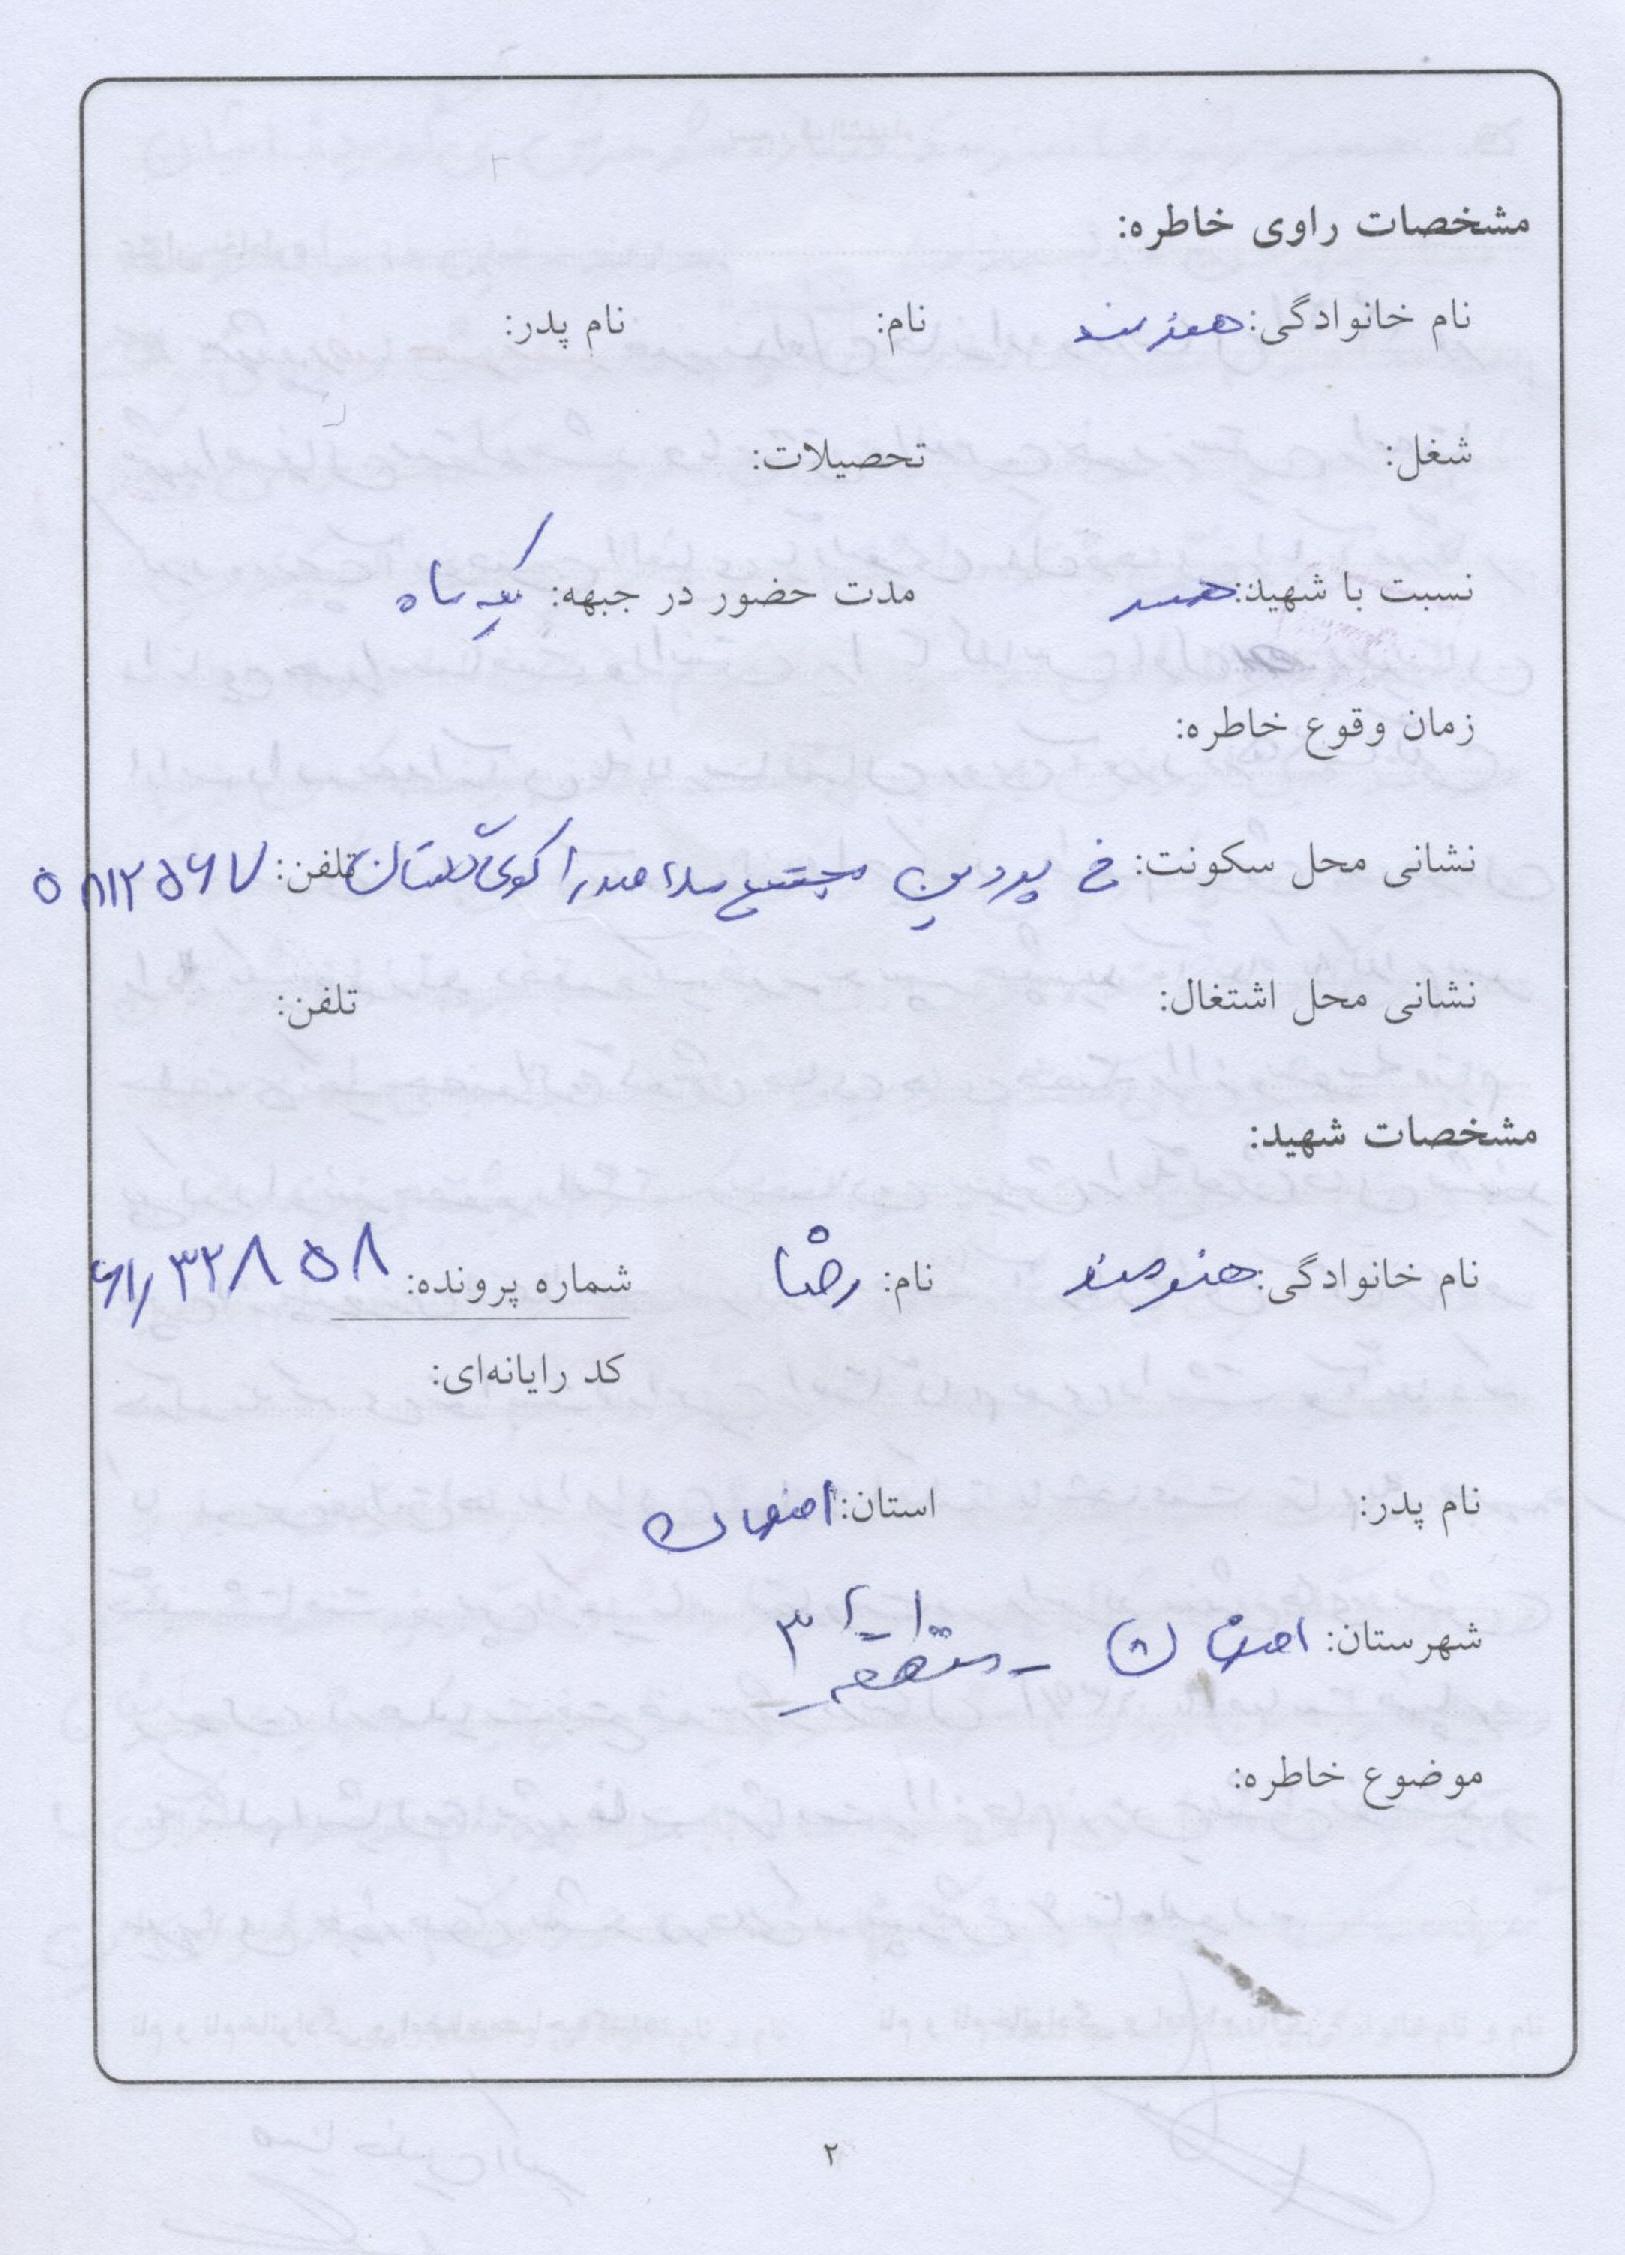 مشخصات راوی خاطره:
نام خانوادگی: هنرمند نام: نام پدر:
شغل: تحصیلات:
نسبت با شهید: مدت حضور در جبهه: یک ماه
زمان وقوع خاطره:
نشانی محل سکونت: خ پروین مجتمع ملاصدرا کوی گلستان تلفن: ۵۸۱۲۵۶۷
نشانی محل اشتغال: تلفن:
مشخصات شهید:
نام خانوادگی: هنرمند نام: رضا شماره پرونده: ۶۱/۳۲۸۵۸
کد رایانه‌ای:
نام پدر: استان: اصفهان
شهرستان: اصفهان - منطقه ۳
موضوع خاطره:
۲